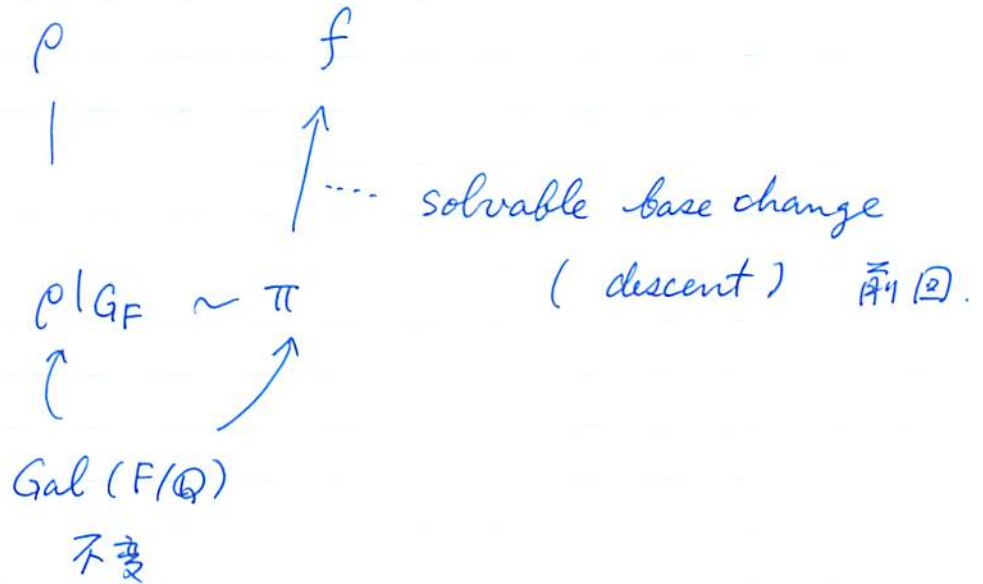 ρ f
..... solvable base change
(descent) 前回.
ρ|G_F ~ π
Gal (F/ℚ)
不変